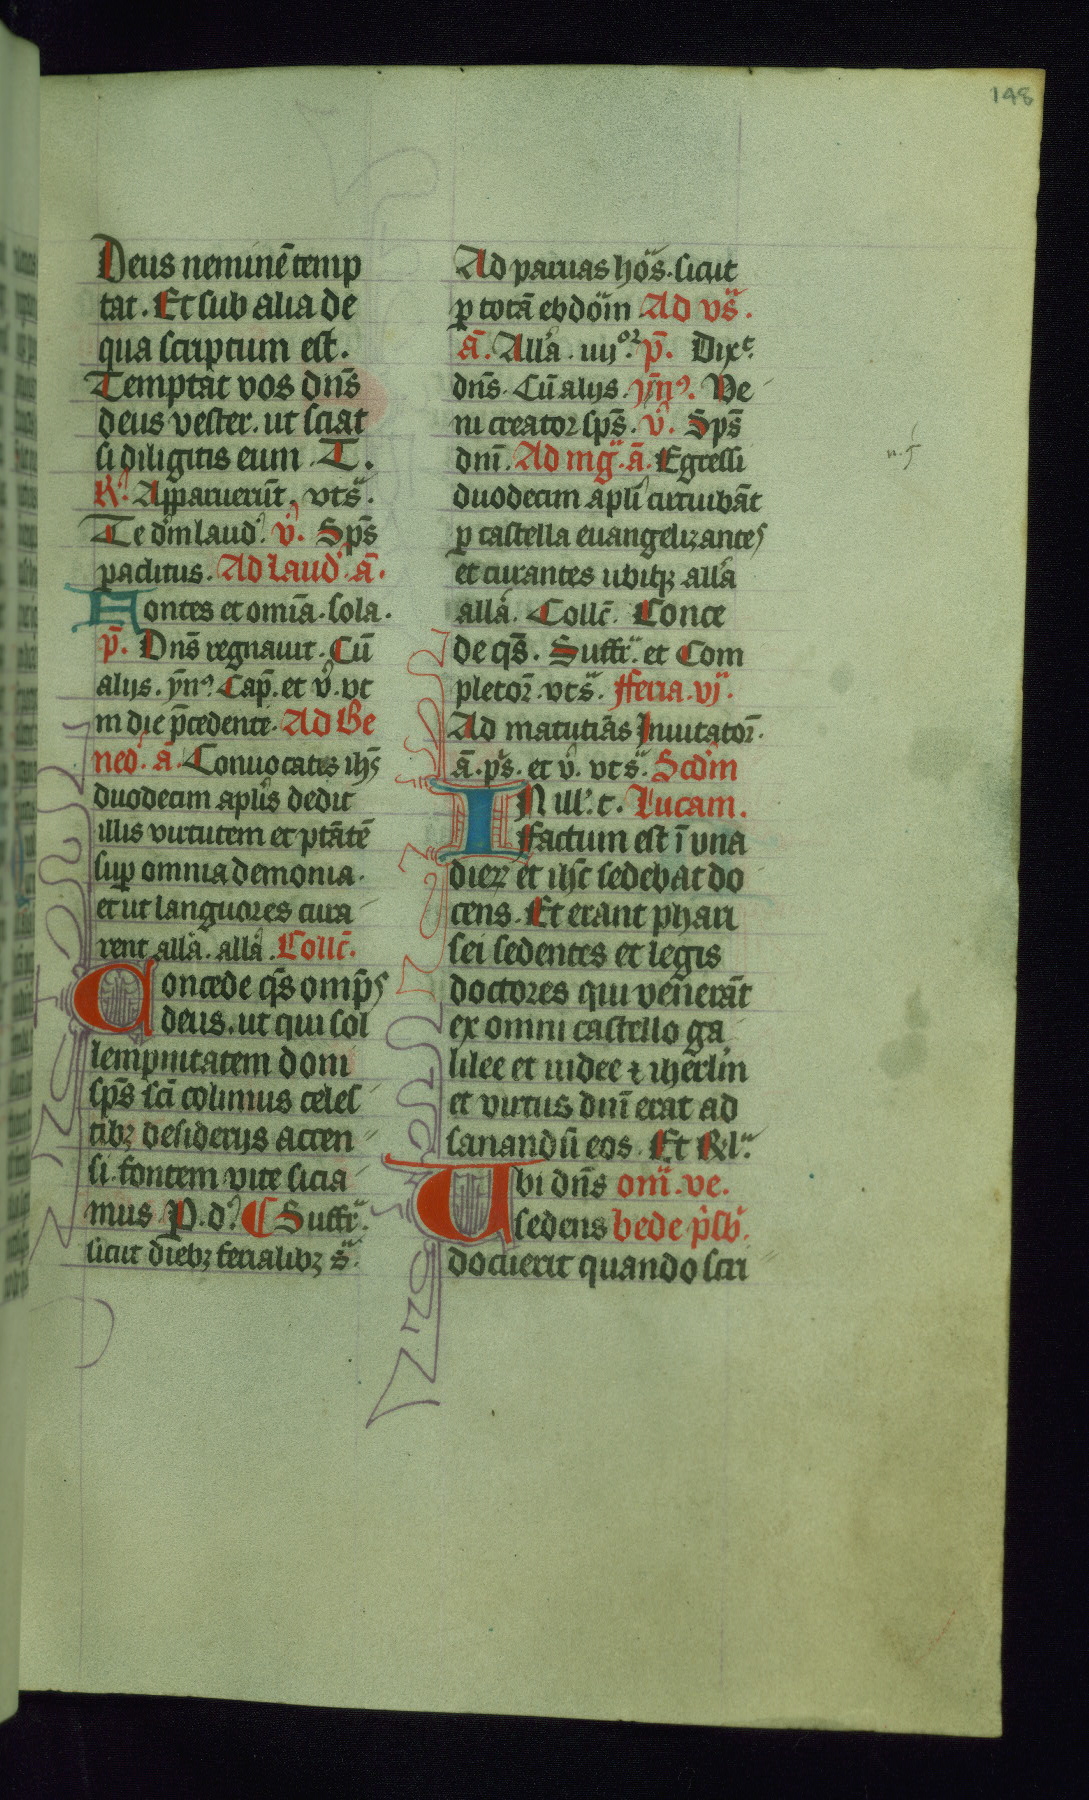 148
Deus neminē temp
tat. Et sub alia de
qua scriptum est.
Temptat vos dn̄s
deus vester. ut sciat
si diligitis eum. T.
R. Apparuerūt. vts̄.
Te dm̄ laud. v. Sps̄
paclitus. Ad Laud. ā.
Fontes et omīa. sola.
p̄. Dn̄s regnauit. Cū
alijs. ỹn. Cap̄. et v. vt
in die p̄cedente. Ad Be
ned. ā. Conuocatis ihs̄
duodecim aplis dedit
illis virtutem et ptātē
sup omnia demonia.
et ut languores cura
rent alla. alla. Collc̄.
Concede qs̄ omp̄s
deus. ut qui sol
lempnitatem doni
sps̄ scī colimus celes
tibꝫ desiderijs accen
si. fontem vite sicia
mus P. d. Suffr.
sicut diebꝫ ferialibꝫ s̄.
Ad paruas hōs. sicut
p totā ebdōm Ad vs̄.
ā. Alla. iiijor. p̄. Dixt
dn̄s. Cū alijs. ỹn. Ve
ni creator sps̄. v. Sps̄
dnī. Ad mḡ. ā. Egressi
duodecim apli circuibāt
p castella euangelizantes
et curantes ubiqꝫ alla
alla. Collc̄. Conce
de qs̄. Suffr. et Com
pletor̄. vts̄. Feria. vj.
Ad matutiās Inuitator̄.
ā. ps. et v. vts̄. Scdm
IN ill. t. Lucam.
Factum est ī vna
dieꝝ et ihc̄ sedebat do
cens. Et erant phari
sei sedentes et legis
doctores qui venerāt
ex omni castello ga
lilee et iudee ⁊ iherlm̄
et virtus dnī erat ad
sanandū eos. Et Rl.
Ubi dn̄s om̄. ve.
sedens bede. p̄sb.
docuerit quando scri